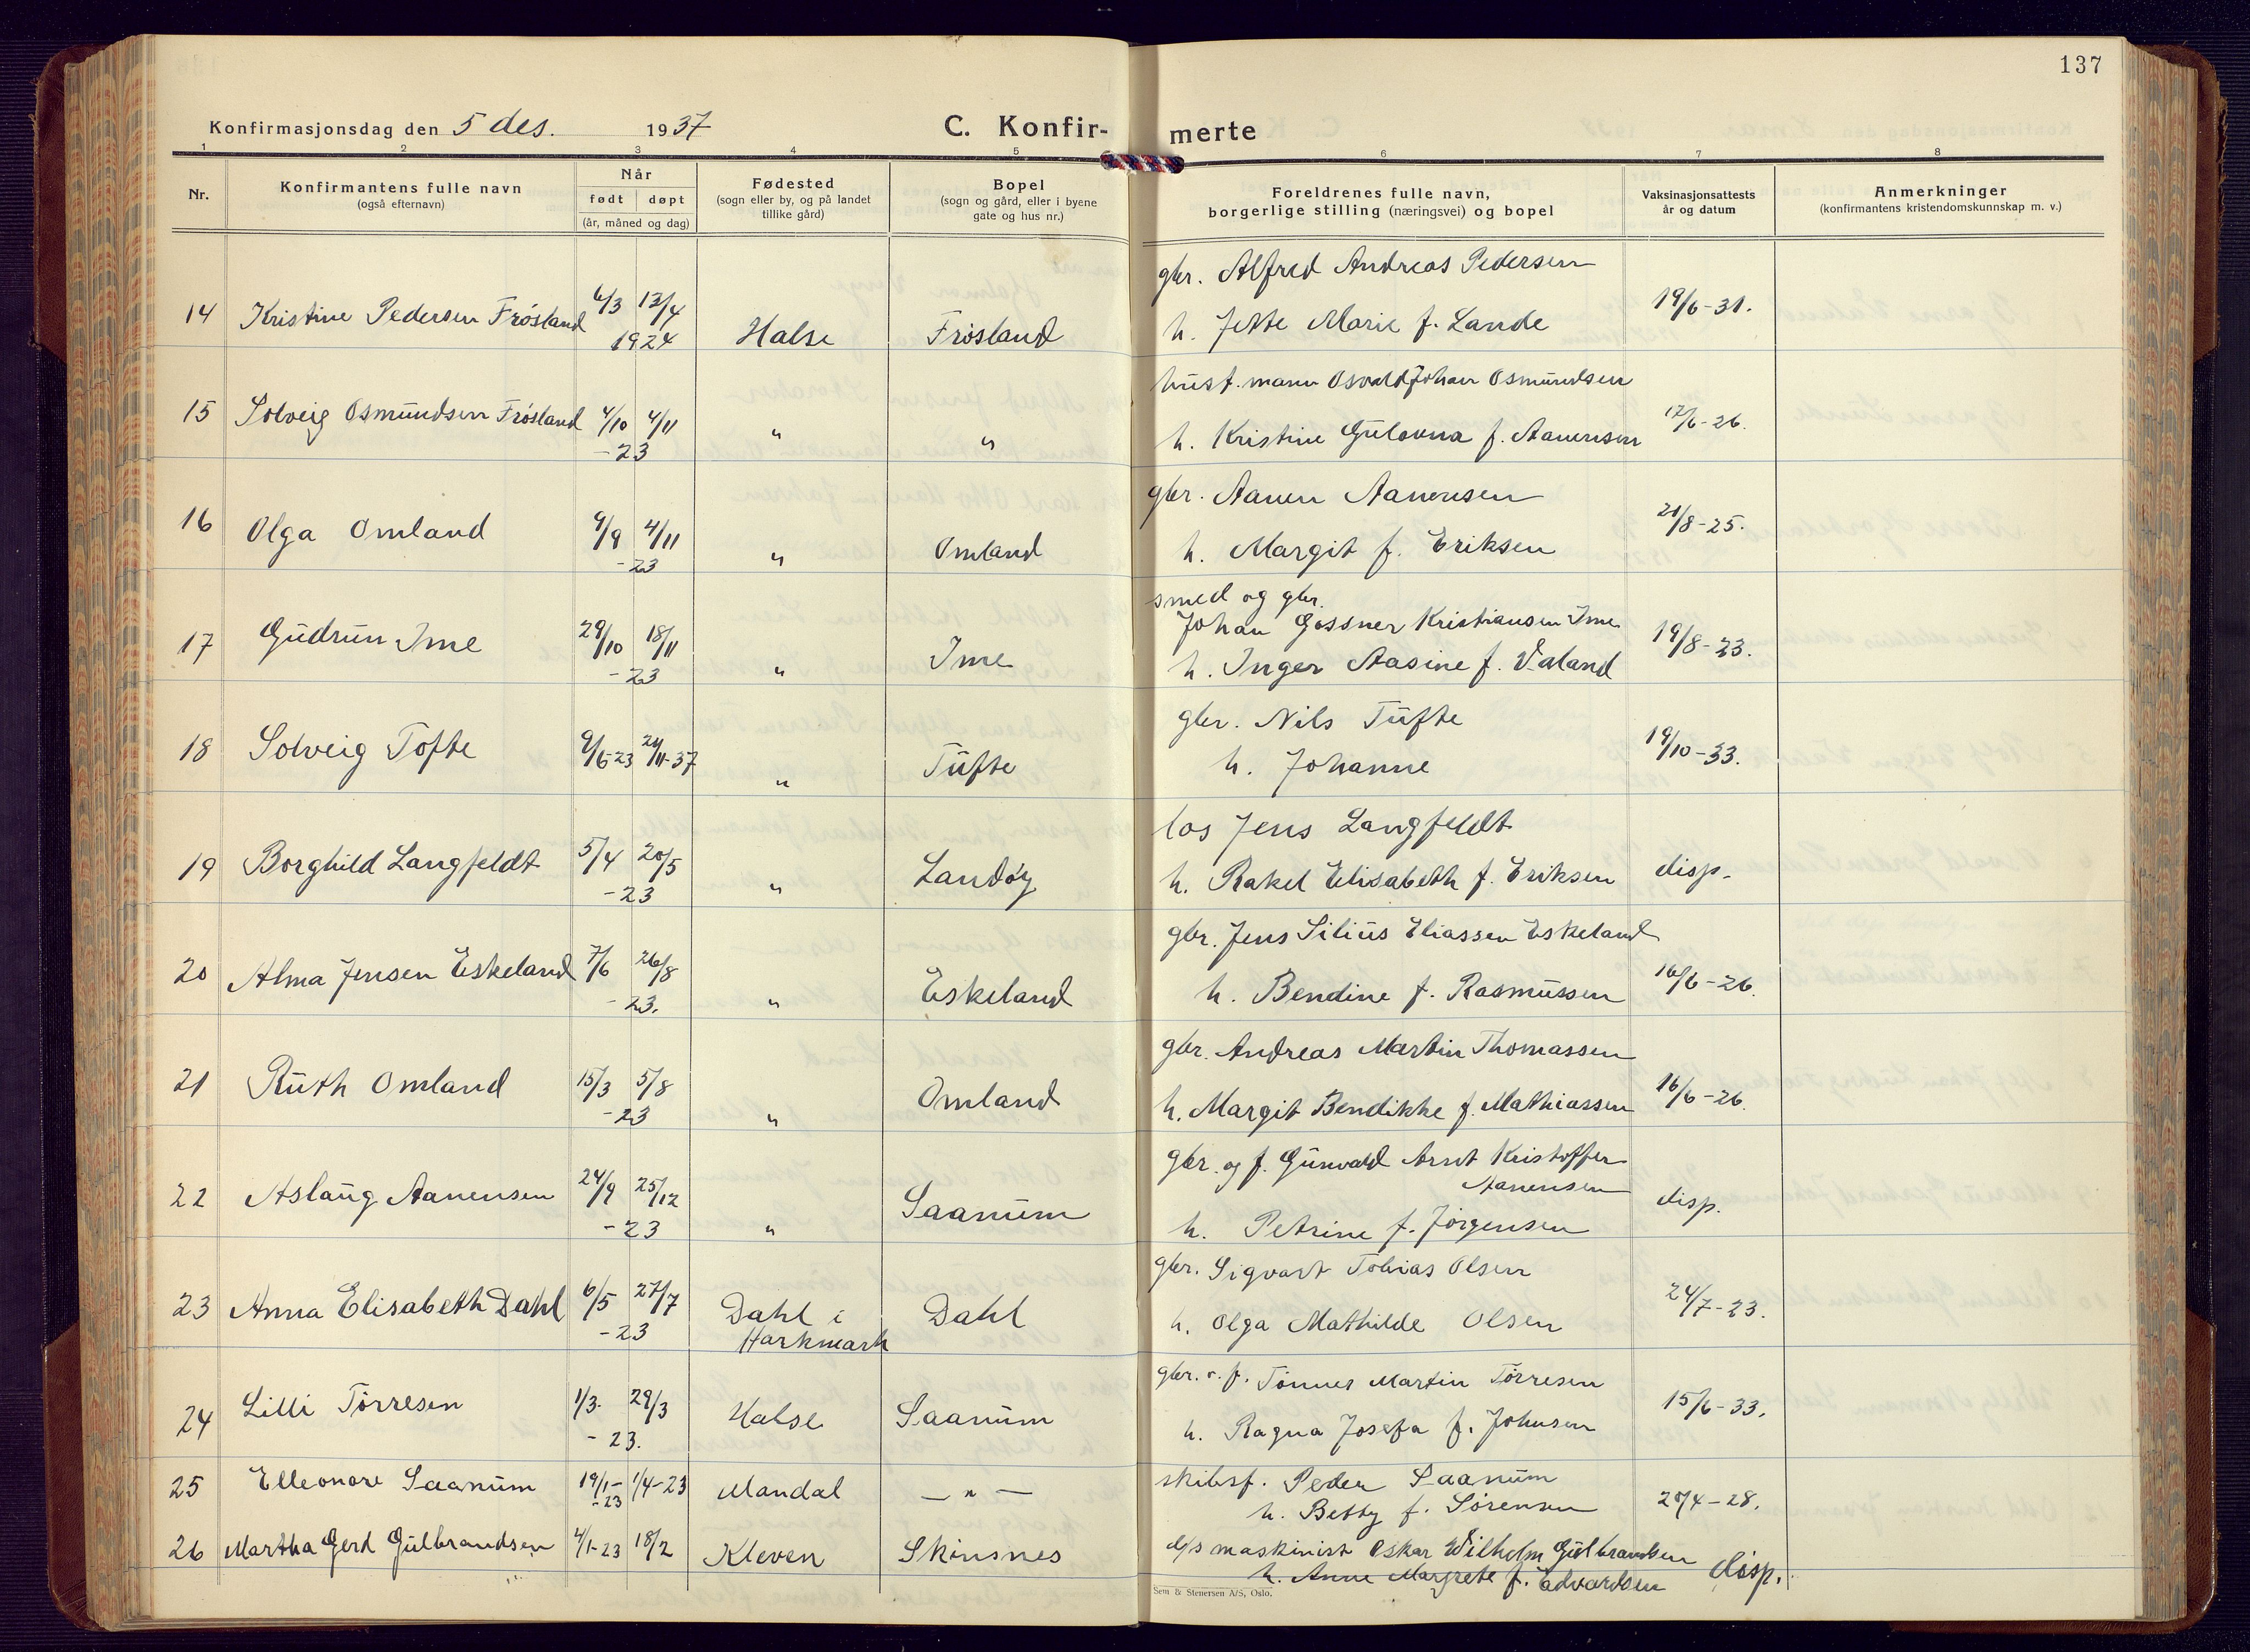 137
Konfirmasjonsdag den 5 des. 1937
C. Konfir-merte
1 2 3 4 5 6 7 8
Nr.
Konfirmantens fulle navn
(også efternavn)
Når
født døpt
(år, måned og dag)
Fødested
(sogn eller by, og på landet
tillike gård)
Bopel
(sogn og gård, eller i byene
gate og hus nr.)
Foreldrenes fulle navn,
borgerlige stilling (næringsvei) og bopel
Vaksinasjonsattests
år og datum
Anmerkninger
(konfirmantens kristendomskunnskap m. v.)
gbr. Alfred Andreas Pedersen
14 Kristine Pedersen Frøsland 6/3 13/4 19/6-31.
1924 Halse Frøsland h. Jette Marie f. Lande
husf. mann Osvald Johan Osmundsen
15 Solveig Osmundsen Frøsland 4/10 4/11 17/6-26.
-23 " " h. Kristine Gulovna f. Aanensen
gbr. Aanen Aanensen
16 Olga Omland 9/9 4/11 21/8-25.
-23 " Omland h. Margit f. Eriksen
smed og gbr.
Johan Gossner Kristiansen Ime
17 Gudrun Ime 29/10 18/11 19/8-23.
-23 " Ime h. Inger Aasine f. Valand
gbr. Nils Tufte
18 Solveig Tofte 9/6-23 21/11-37 19/10-33.
" Tufte h. Johanne
los Jens Langfeldt
19 Borghild Langfeldt 5/4 20/5 disp.
-23 " Landøy h. Rakel Elisabeth f. Eriksen
gbr. Jens Silius Eliassen Eskeland
20 Alma Jensen Eskeland 7/6 26/8 16/6-26.
-23. " Eskeland h. Bendine f. Rasmussen
gbr. Andreas Martin Thomassen
21 Ruth Omland 15/3 5/8 16/6-26.
-23 " Omland h. Margit Bendikke f. Mathiassen
gbr. og f. Gunvald Arnt Kristoffer
Aanensen
22 Aslaug Aanensen 24/9 25/12 disp.
-23 " Saanum h. Petrine f. Jørgensen
gbr. Sigvart Tobias Olsen
23 Anna Elisabeth Dahl 6/5 27/7 24/7-23.
-23 Dahl i Harkmark Dahl h. Olga Mathilde Olsen
gbr. o. f. Tønnes Martin Tørresen
24 Lilli Tørresen 1/3. 29/3 15/6-33.
-23. Halse Saanum h. Ragna Josefa f. Johnsen
skibsf. Peder Saanum
25 Elleonore Saanum 19/1- -23 1/4-23 Mandal — " — h. Betty f. Sørensen 20/4-28.
d/s maskinist Oskar Wilhelm Gulbrandsen
26 Martha Gerd Gulbrandsen 4/1-23 18/2 Kleven Skinsnes disp.
h. Anne Margrete f. Edvardsen
Sem & Stenersen A/S, Oslo.